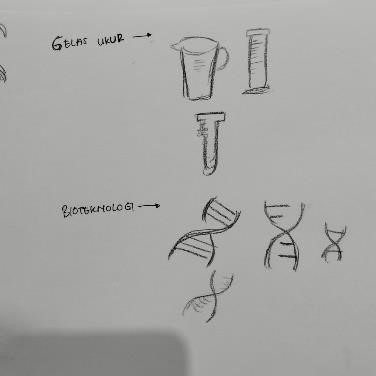 GELAS UKUR
BIOTEKNOLOGI